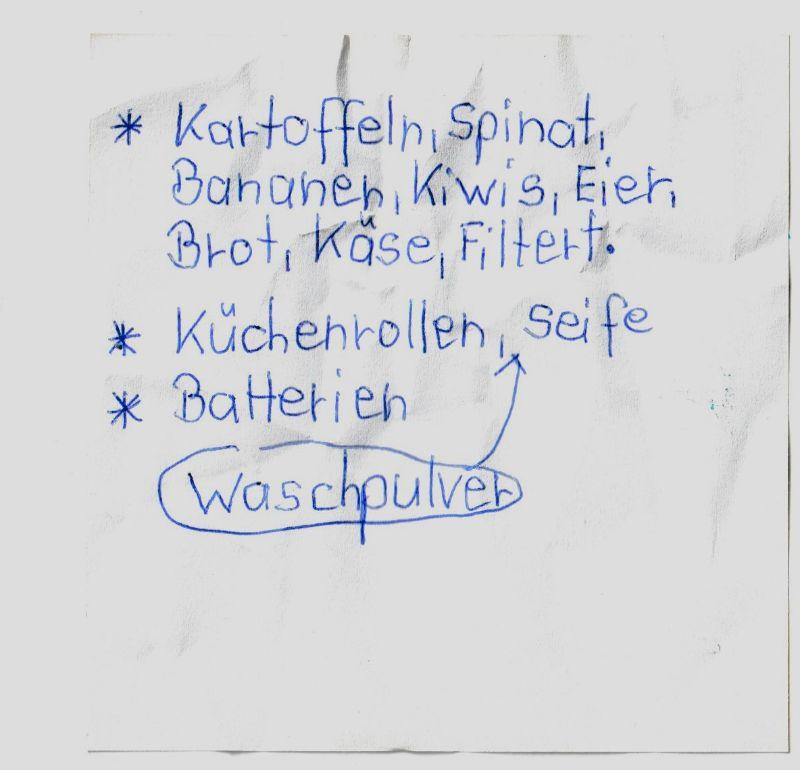 * Kartoffeln, Spinat,
Bananen, Kiwis, Eier,
Brot, Käse, Filtert.
* Küchenrollen, Seife
* Batterien
Waschpulver